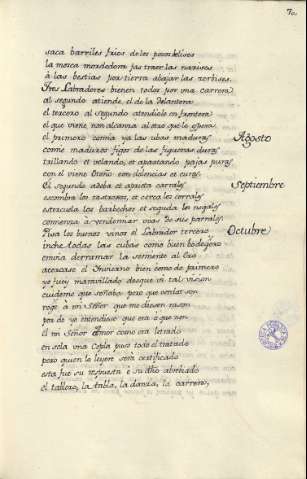 70
saca barriles frios de los pozos helisos
la mosca mordedora fas traer las narises
à las bestias por tierra abajar las cerbises.
Tres Labradores bienen todos por una carrera
al segundo atiende el de la Delantera
el tercero al segundo atiendele en frontera
el que viene, non alcanza al otro que le espera.
el primero comia ya las ubas maduras
comie maduros figos de las figueras duras
trillando et velando, et apartando pajas puras
con el viene Otoño con dolencias et curas.
Agosto
El segundo adoba et aprieta carrales
Septiembre
escombra los rastrojos, et cerca los corrales
estercuela los barbechos et sacude los nogales
comienza a vendimiar uvas de sus parrales.
Pisa los buenos vinos el Labrador tercero
Octubre
inche todas las cubas como buen bodeguero
envia derramar la semiente al Ero
acercase el Invierno bien como de primero
yo fuy maravillado desque vi tal vision
cuideme que soñaba pero que verdat son
rogè à mi Señor que me diesse rason
por do yo entendiese que era o que non.
el mi Señor Amor como era letrado
en sola una Copla puso todo el tratado
por do quien lo leyere será certificado
esta fué su respuesta è su dho abreviado
el tablero, la tabla, la danza, la carrera,